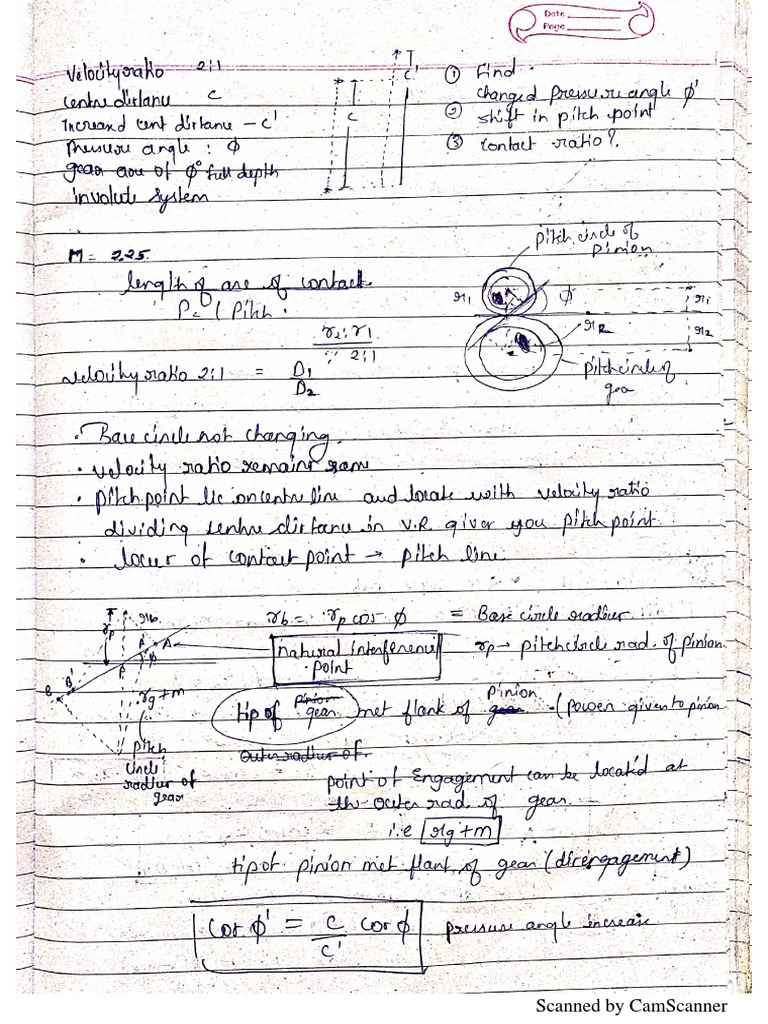 Date
Page
Velocity ratio 2:1
centre distance c
Increased cent distance - c'
Pressure angle : φ
gear are of φ° full depth
involute system
c
T
c'
① Find :
changed pressure angle φ'
② shift in pitch point
③ contact ratio?
M = 2.25
length of arc of contact
P = (Pitch .
r2 : r1
∵ 2:1
velocity ratio 2:1 = D1/D2
pitch circle of
pinion
r1
φ
r1
r2
r2
pitch circle of
gear
• Base circle not changing.
• velocity ratio remains same
• pitch point lie on centre line and locate with velocity ratio
dividing centre distance in V.R. gives you pitch point.
• locus of contact point → pitch line
rb
rp
A'
A
φ
P
B B'
rg+m
pitch
circle
radius of
gear
rb = rp cos φ = Base circle radius
natural interference
point
rp → pitch circle rad. of pinion
tip of pinion gear met flank of gear pinion (power given to pinion
outer radius of
point of Engagement can be located at
the outer rad. of gear.
i.e rg+m
tip of pinion met flank of gear (disengagement)
cos φ' = c/c' cos φ
pressure angle increase
Scanned by CamScanner